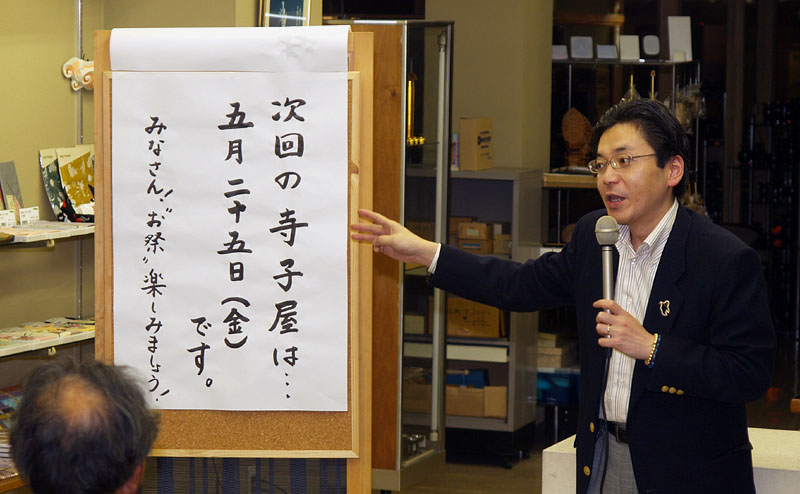 次回の寺子屋は…
五月二十五日(金)
です。
みなさん!"お祭"楽しみましょう!